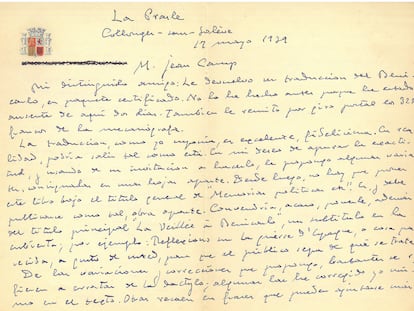 La Prasle
Collonges-sous-Salève
19 mayo 1939
M. Jean Camp
Mi distinguido amigo: Le devuelvo su traducción del Beni
carlo, en paquete certificado. No lo he hecho antes porque he estado
ausente de aquí dos días. También le remito por giro postal los 325
francos de la mecanógrafa.
La traducción, como yo suponía, es excelente, fidelísima. En rea
lidad, podría salir tal como está. En mi deseo de apurar la exacti
tud, y usando de su invitación a hacerlo, le propongo algunas varian
tes, consignadas en unas hojas aparte. Desde luego, no hay que poner
este libro bajo el título general de "Memorias políticas etc". Y debe
publicarse como tal, obra aparte. Convendría, acaso, ponerle, además
del título principal La Veillée à Benicarló un subtítulo en la
cubierta, por ejemplo: Reflexions sur la guerre d'Espagne, o cosa pa
recida, a gusto de usted, para que el público sepa de qué se trata.
De las variaciones y correcciones que propongo, bastantes se re
fieren a erratas de la dactylo, algunas las he corregido yo mis
mo en el texto. Otras recaen en frases que pueden ajustarse más